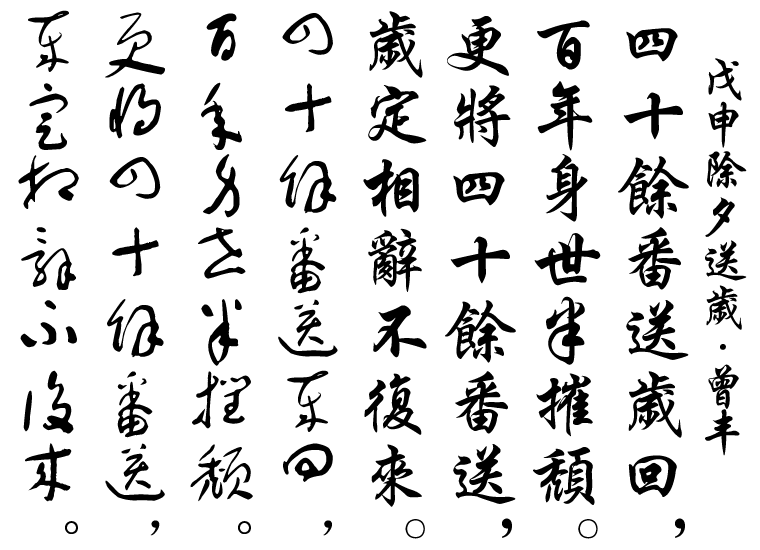 戊申除夕送歲·曾丰
四十餘番送歲回，
百年身世半摧頹。
更將四十餘番送，
歲定相辭不復來。
四十餘番送歲回，
百年身世半摧頹。
更將四十餘番送，
歲定相辭不復來。